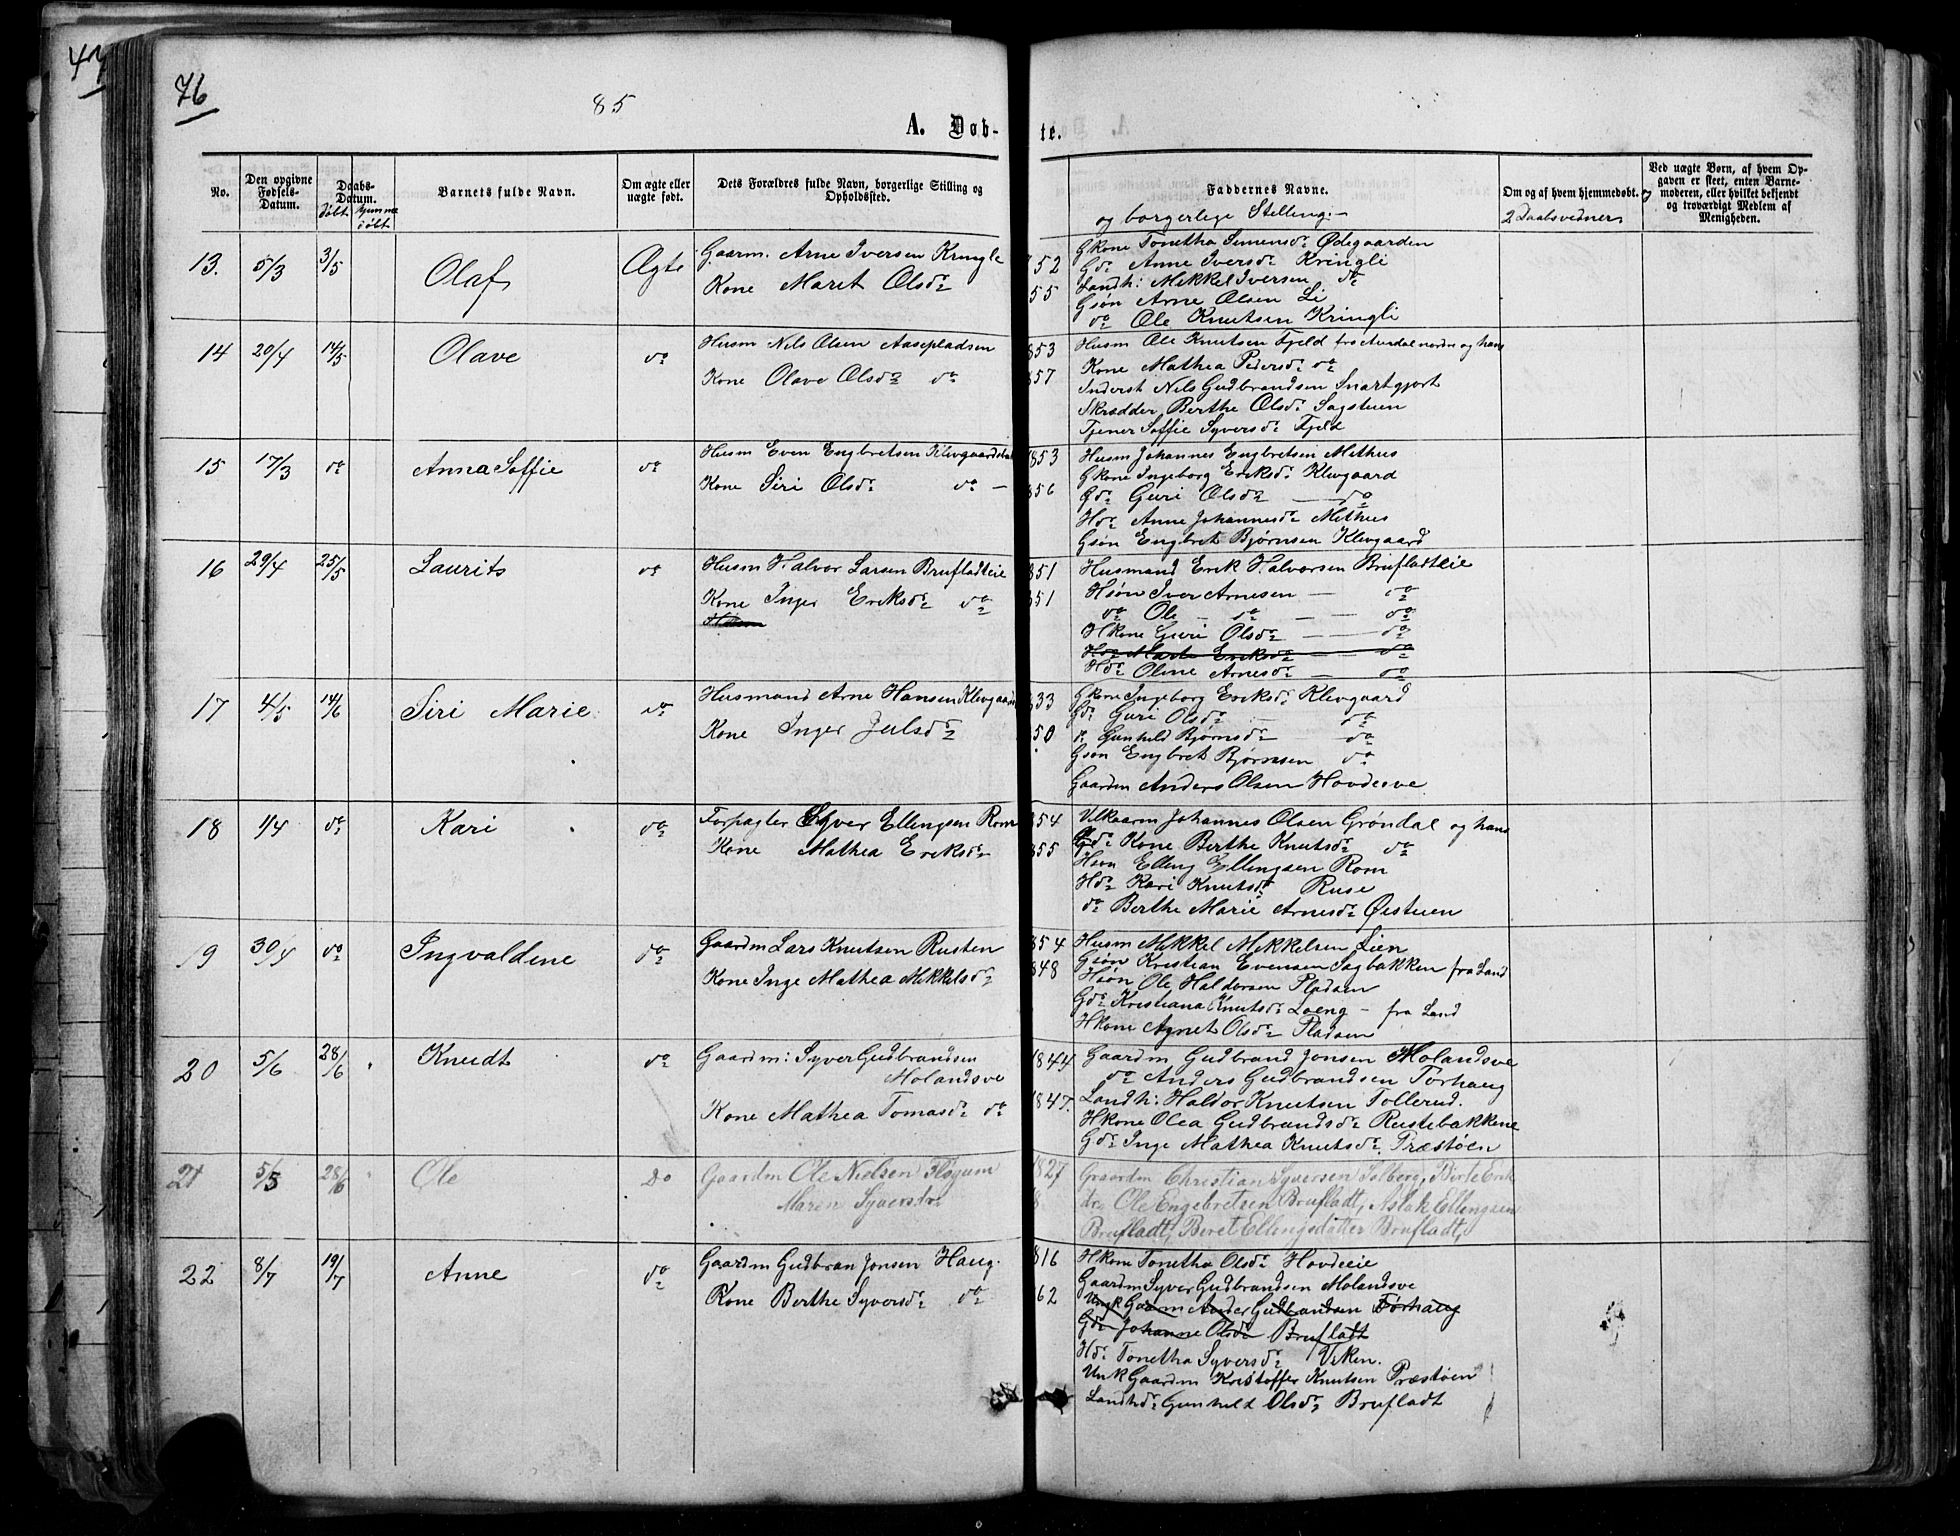 76
85
A. Døb-
te.
No.
Den opgivne Fødsels-Datum.
Daabs-Datum.
døbt hjemme døbt
Barnets fulde Navn.
Om ægte eller uægte født.
Dets Forældres fulde Navn, borgerlige Stilling og Opholdssted.
Faddernes Navne.
og borgerlige Stilling:-
Om og af hvem hjemmedøbt.
2 Daabsvidner
Ved uægte Børn, af hvem Opgaven er skeet, enten Barnemoderen, eller hvilket bekjendt og troværdigt Medlem af Menigheden.
13. 5/3 3/5 Olaf Ægte
Gaarm. Arne Iversen Kringle
Kone Marit Olsdr
52
55
Gkone Tonetha Simensdr Ødegaarden
Gdr Anne Iversdr Kringli
Landh: Mikkel Iversen do
Gsøn Arne Olsen Li
do Ole Knutsen Kringli
14 20/4 14/5 Olave do
Husm Nils Olsen Aasepladsen
Kone Olave Olsdr do
853
857
Husm Ole Knutsen Fjeld fra Aurdal nordre og hans
Kone Mathea Pedersdr do
Inderst Nils Gudbrandsen Snartgjort
Skrædder Berthe Olsdr Sagstuen
Tjener Soffie Syversdr Fjeld
15 17/3 do Anna Soffie do
Husm Even Engbretsen
Kone Siri Olsdr do -
853
856
Husm Johannes Engbretsen Mithus
Gkone Ingeborg Eriksdr Klevgaard
Gdr Guri Olsdr do
Hdr Anne Johannesdr Mithus
Gsøn Engbret Bjørnsen Klevgaard
16 29/4 25/5 Laurits do
Husm Halvor Larsen Brufladteie
Kone Inger Eriksdr do
851
851
Husmand Erik Halvorsen Brufladteie
Hsøn Iver Arnesen - do
do Ole - do - do
Hkone Guri Olsdr - do
Hdr Marit Eriksdr - do
Hdr Oline Arnesdr - do
17 4/5 14/6 Siri Marie do
Husmand Arne Hansen Klevgaard
Kone Inger Julsdr
833
50
Gkone Ingeborg Eriksdr Klevgaard
Gdr Guri Olsdr - do
Gunhild Bjørnsdr do
Gsøn Engbret Bjørnsen do
Gaardm Anders Olsen Hovdesve
18 1/4 do Kari do
Forpagter Syver Ellingsen Rom
Kone Mathea Eriksdr
854
855
Vilkaarm Johannes Olsen Grøndal og hans
Kone Berthe Knutsdr do
Hsøn Elling Ellingsen Rom
Hdr Kari Knutsdr Ruse
do Berthe Marie Arnesdr Øistuen
19 30/4 do Ingvaldine do
Gaardm Lars Knutsen Rusten
Kone Inge Mathea Mikkelsdr
854
848
Husm Mikkel Mikkelsen Lien
Gsøn Kristian Evensen Sagbakken fra Land
Hsøn Ole Haldorsen Pladsen
Gdr Kristiana Knutsdr Loeng - fra Land
Hkone Agnet Olsdr Pladsen
20 5/6 28/6 Knudt do
Gaardm: Syver Gudbrandsen
Molandsve
Kone Mathea Tomasdr do
1844
1847.
Gaardm Gudbrand Jonsen Molandsve
do Anders Gudbrandsen Tørhaug
Landh: Haldor Knutsen Tollerud.
Hkone Olea Gudbrandsdr Rustebakkene
Gdr Inge Mathea Knutsdr Præstøen
21 5/5 28/6 Ole Do
Gaardm Ole Nielsen Flygum
Maren Syversdr
1827
8
Graardm Christian Syversen Solberg, Birte Erik
dr. Ole Engebretsen Brufladt, Aslak Ellingsen
Brufladt, Beret Ellingsdatter Brufladt,
22 8/7 19/7 Anne do
Gaardm Gudbran Jonsen Haug.
Kone Berthe Syversdr do
816
62
Hkone Tonetha Olsdr Hovdeeie
Gaardm Syver Gudbrandsen Molandsve
Ungk Gaarm Ander Gudbrandsen Tørhaug
Gdr Johanne Olsdr Brufladt
Hdr Tonetha Syversdr Viken.
Unk Gaardm Kristoffer Knutsen Præstøen
Landhdr Gunhild Olsdr Brufladt